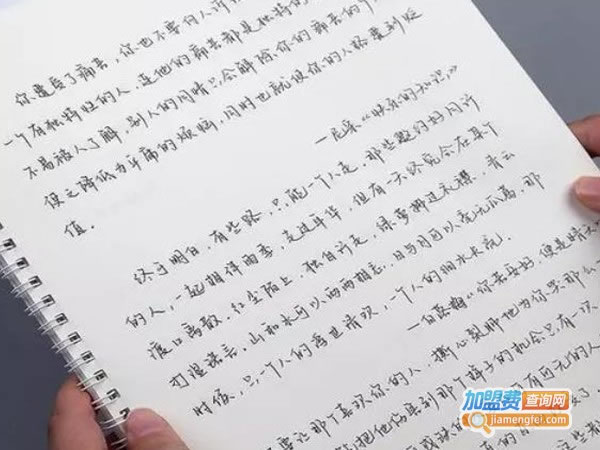 你遭受了痛苦，你也不要向人诉
一个有独特性的人，连他的痛苦都是独特的
不易被人了解，别人的同情只会解除你的痛苦的个
使之降低为平庸的烦恼，同时也就使你的人格遭到贬
值。
一尼采《快乐的知识》
终于明白，有些路，只能一个人走。那些邀约好同行
的人，一起相伴雨季，走过年华，但有一天终究会在某个
渡口离散。红尘陌上，独自行走，绿萝拂过衣襟，青云
打湿诺言。山和水可以两两相忘，日与月可以毫无瓜葛。那
时候，只一个人的浮世清欢，一个人的细水长流。
一白落梅《你若安好，便是晴天
要让那个喜欢你的人，撕心裂肺地为你哭那么
能把他伤害到那个样子的机会只有一次
加盟费查询网
jiamengfei.com